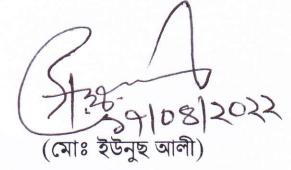 ১৭/০৪/২০২২
(মোঃ ইউনুছ আলী)